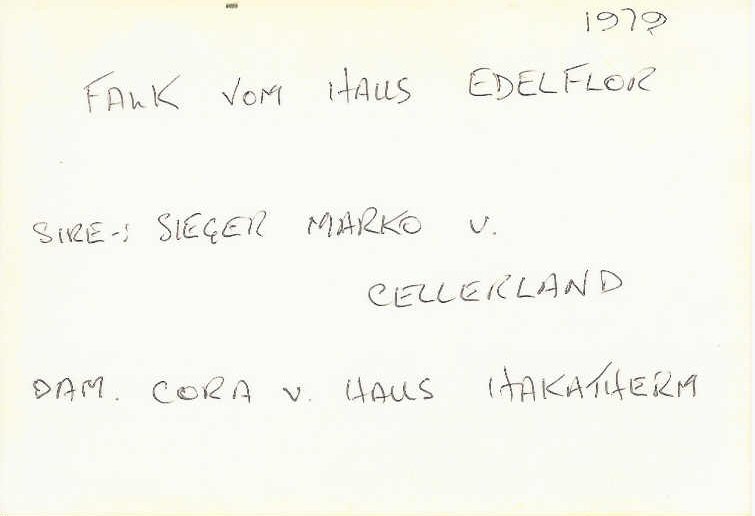 1979
FALK VOM HAUS EDELFLOR
SIRE-: SIEGER MARKO V.
CELLERLAND
DAM. CORA V. HAUS HAKATHERM